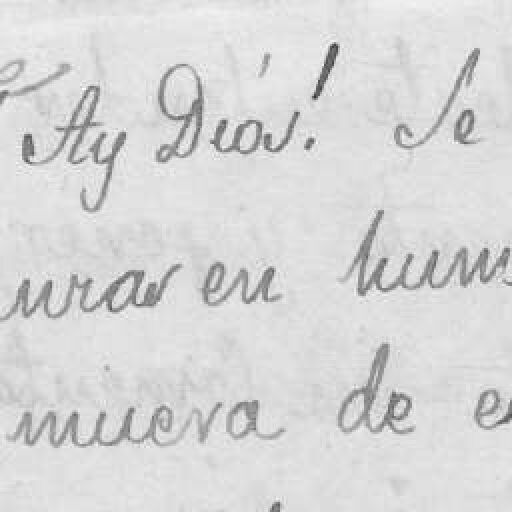 Ay Diós! Se
urar en hum
mueva de e